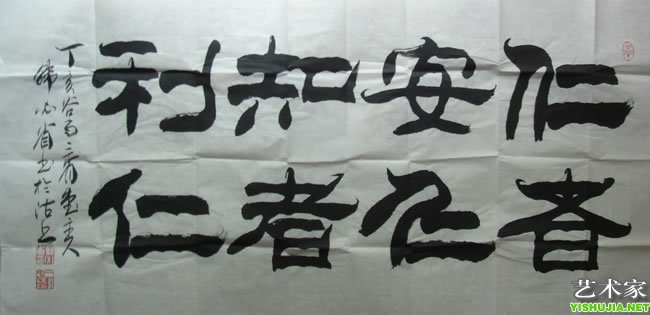 仁者
安仁
知者
利仁
丁亥谷雨三省堂主人
必省书於沽上
艺术家
YISHUJIA.NET